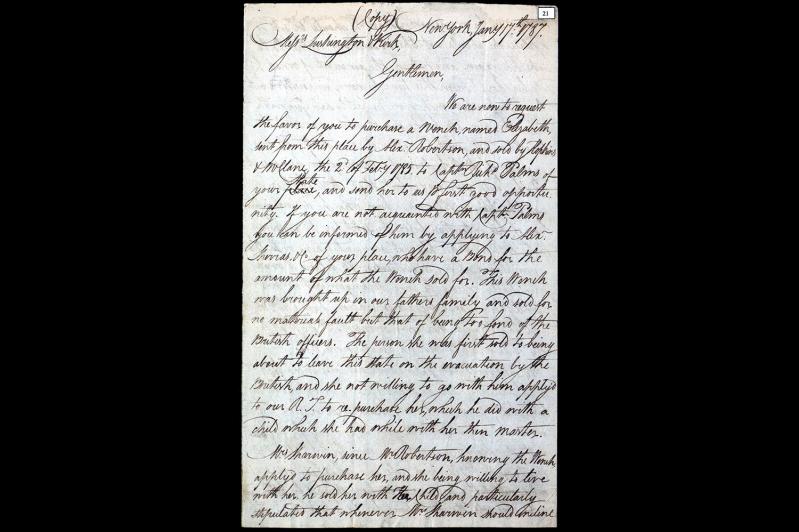 21
(Copy)
New York, Jany 17th 1787.
Messrs Lushington & Kirk,
Gentlemen,
We are now to request
the favor of you to purchase a Wench, named Elizabeth,
sent from this place by Alex Robertson, and sold by
& the 2d of Feb.y 1785 to Captn Palms of
your place State, and send her to us first good opportu
nity. If you are not acquainted with Captn Palms
you can be informed of him by applying to Alexr
&c of your place, who have a Bond for the
amount of what the Wench sold for. This Wench
was brought up in our fathers family and sold for
no material fault but that of being too fond of the
British officers. The person she was first sold to being
about to leave this state on the evacuation by the
British, and she not willing to go with him applyd
to our R. T. to re-purchase her, which he did with a
child which she had while with her then master.
Mrs Sharwin, since Mrs Robertson, knowing the Wench
applyd to purchase her, and she being willing to live
with her he sold her with her Child, and particularly
stipulated that whenever Mrs Sharwin should incline